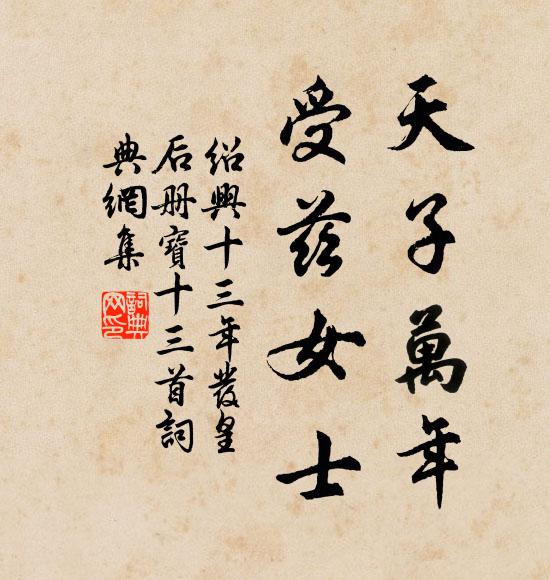 天子萬年
受茲女士
紹興十三年發皇
后册寶十三首詞
典網集
詞典網印